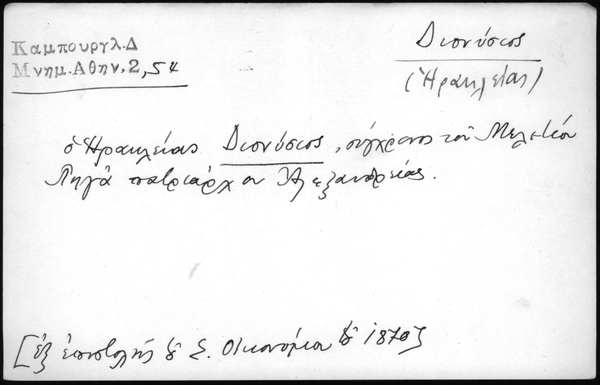 Καμπουργλ.Δ
Μνημ.Αθην.2,54
Διονύσιος
(Ἡρακλείας)
ὁ Ἡρακλείας Διονύσιος, σύγχρονος τοῦ Μελετίου
Πηγᾶ πατριάρχου Ἀλεξανδρείας.
[ἐξ ἐπιστολῆς Σ. Οἰκονόμου 1870]